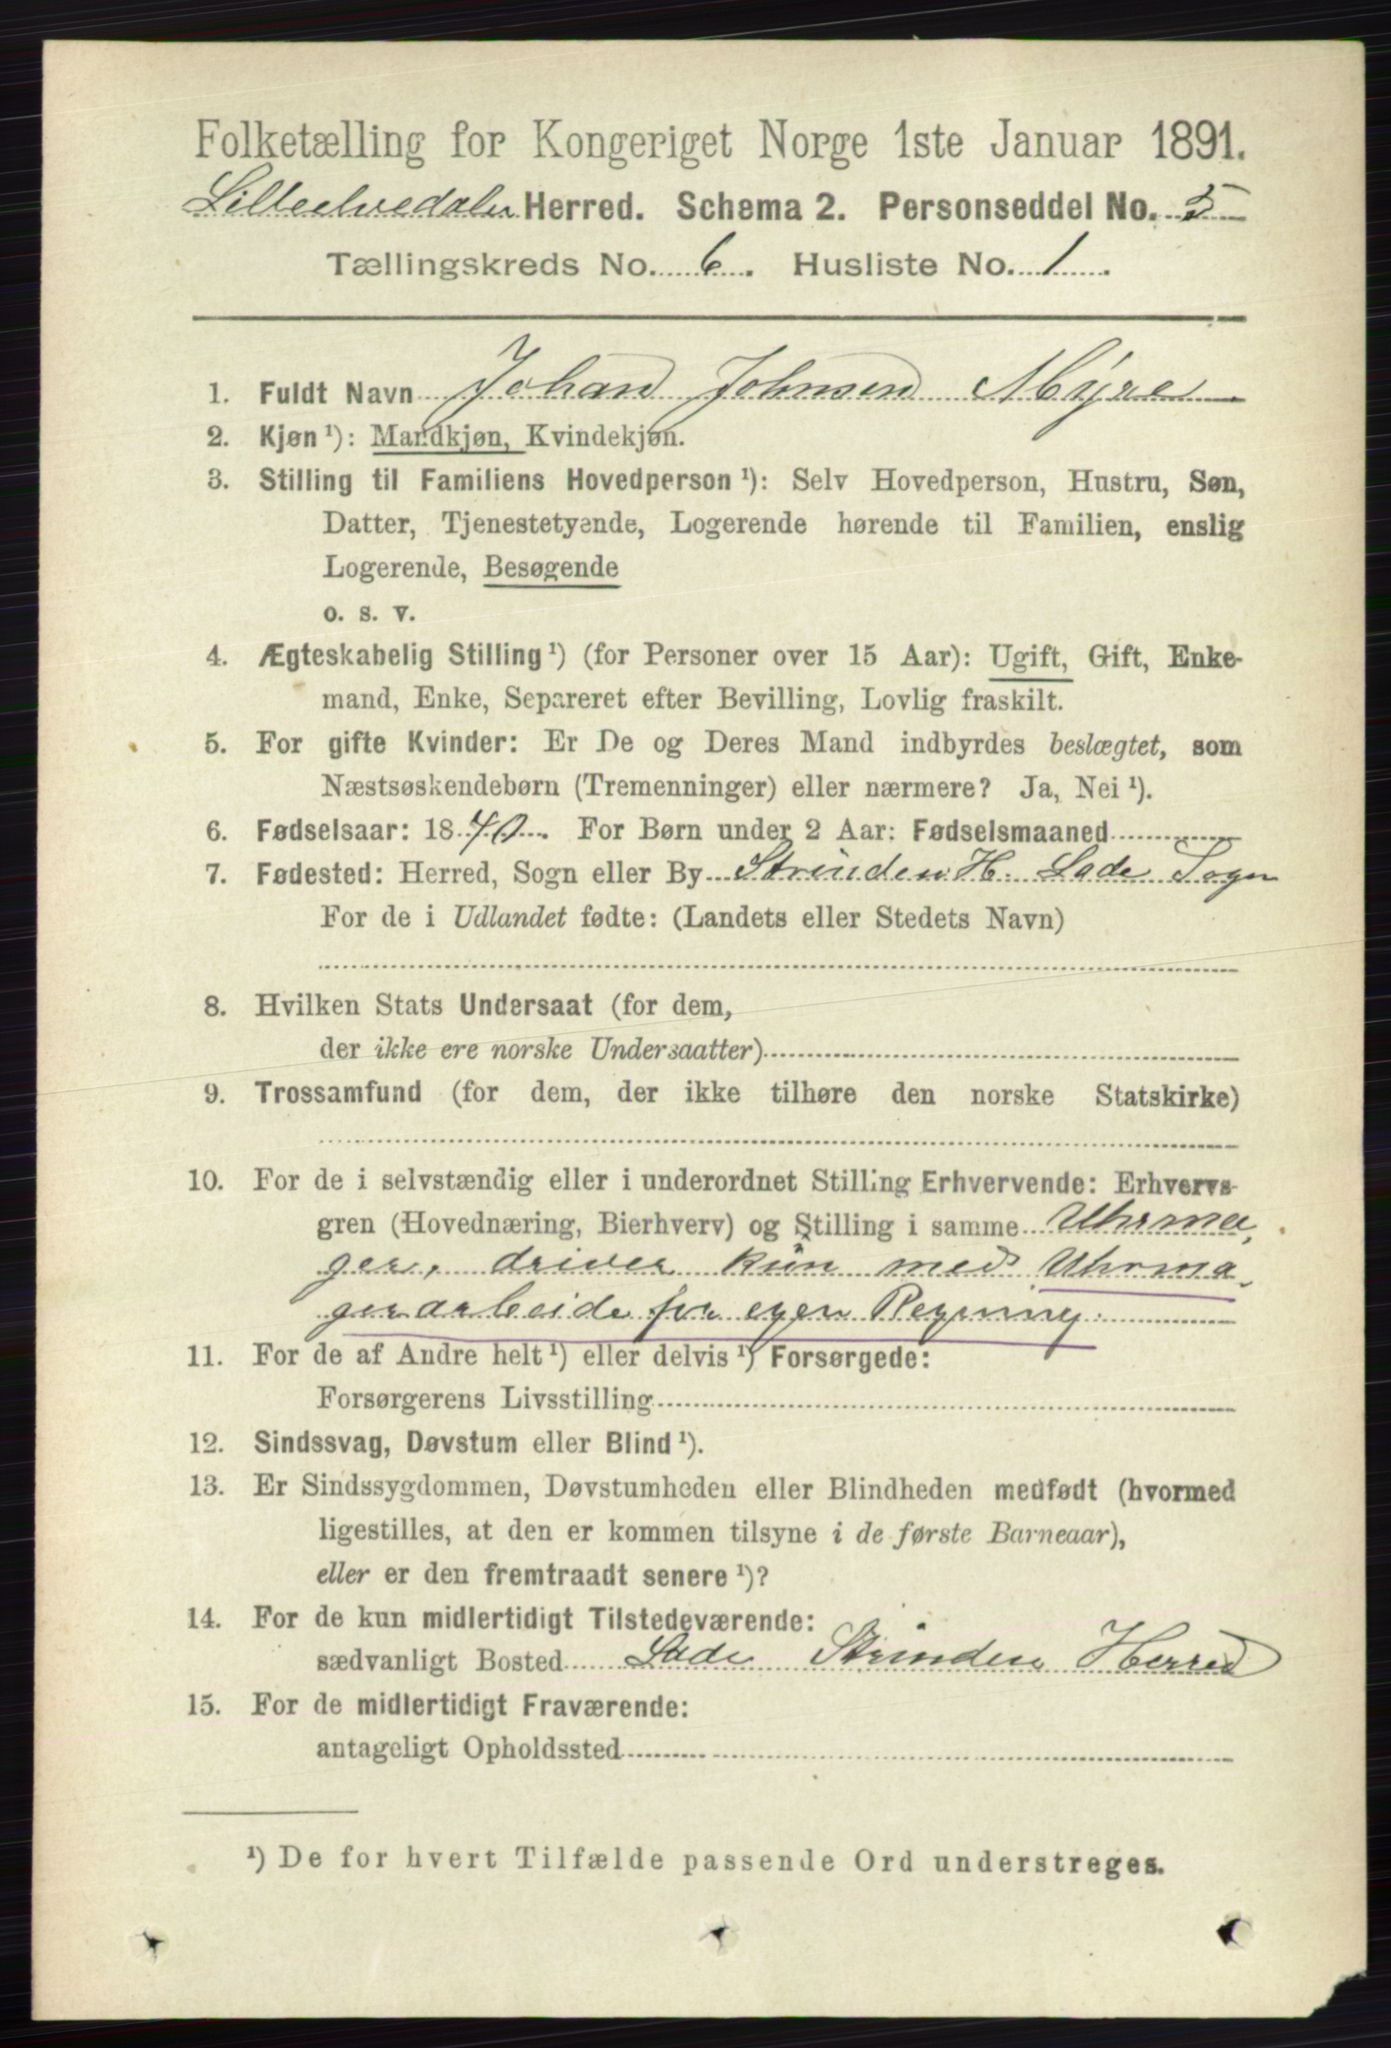 Folketælling for Kongeriget Norge 1ste Januar 1891.
Lilleelvedalen Herred. Schema 2. Personseddel No. 5
Tællingskreds No. 6. Husliste No. 1.
1. Fuldt Navn Johan Johnsen Myre
2. Kjøn ¹): Mandkjøn, Kvindekjøn.
3. Stilling til Familiens Hovedperson ¹): Selv Hovedperson, Hustru, Søn,
Datter, Tjenestetyende, Logerende hørende til Familien, enslig
Logerende, Besøgende
o. s. v.
4. Ægteskabelig Stilling ¹) (for Personer over 15 Aar): Ugift, Gift, Enke-
mand, Enke, Separeret efter Bevilling, Lovlig fraskilt.
5. For gifte Kvinder: Er De og Deres Mand indbyrdes beslægtet, som
Næstsøskendebørn (Tremenninger) eller nærmere? Ja, Nei ¹).
6. Fødselsaar: 1840. For Børn under 2 Aar: Fødselsmaaned
7. Fødested: Herred, Sogn eller By Strinden H. Lade Sogn
For de i Udlandet fødte: (Landets eller Stedets Navn)
8. Hvilken Stats Undersaat (for dem,
der ikke ere norske Undersaatter)
9. Trossamfund (for dem, der ikke tilhøre den norske Statskirke)
10. For de i selvstændig eller i underordnet Stilling Erhvervende: Erhvervs-
gren (Hovednæring, Bierhverv) og Stilling i samme Uhrma-
ger, driver kun med Uhrma-
gerarbeide for egen Regning.
11. For de af Andre helt ¹) eller delvis ¹) Forsørgede:
Forsørgerens Livsstilling
12. Sindssvag, Døvstum eller Blind ¹).
13. Er Sindssygdommen, Døvstumheden eller Blindheden medfødt (hvormed
ligestilles, at den er kommen tilsyne i de første Barneaar),
eller er den fremtraadt senere ¹)?
14. For de kun midlertidigt Tilstedeværende:
sædvanligt Bosted Lade Strinden Herred
15. For de midlertidigt Fraværende:
antageligt Opholdssted
¹) De for hvert Tilfælde passende Ord understreges.